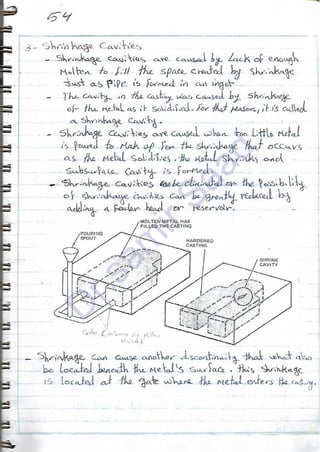 54
3- Shrinkage Cavities
- Shrinkage cavities are caused by Lack of enough
Molten to fill the space created by Shrinkage
Just as pipe is formed in an ingot
- The Cavity in the casting was caused by Shrinkage
of the Metal as it solidified. For that reason, it is called
a shrinkage Cavity.
- Shrinkage Cavities are caused when too Little Metal
is poured to Mak up For the shrinkage that occurs
as the Metal Solidifies. the Metal Shrinks and
Subsurface Cavity is Formed.
- Shrinkage Cavities can be eliminated or the Possibility
of shrinkage Cavities can be greatly reduced by
adding a Feeder head or reservoir.
MOLTEN METAL HAS
FILLED THE CASTING
POURING
SPOUT
HARDENED
CASTING
SHRINK
CAVITY
Gate
- Shrinkage can cause another discontinuity that what also
be located beneath the Metal's Surface. this Shrinkage
is located at the gate where the metal enters the casting.